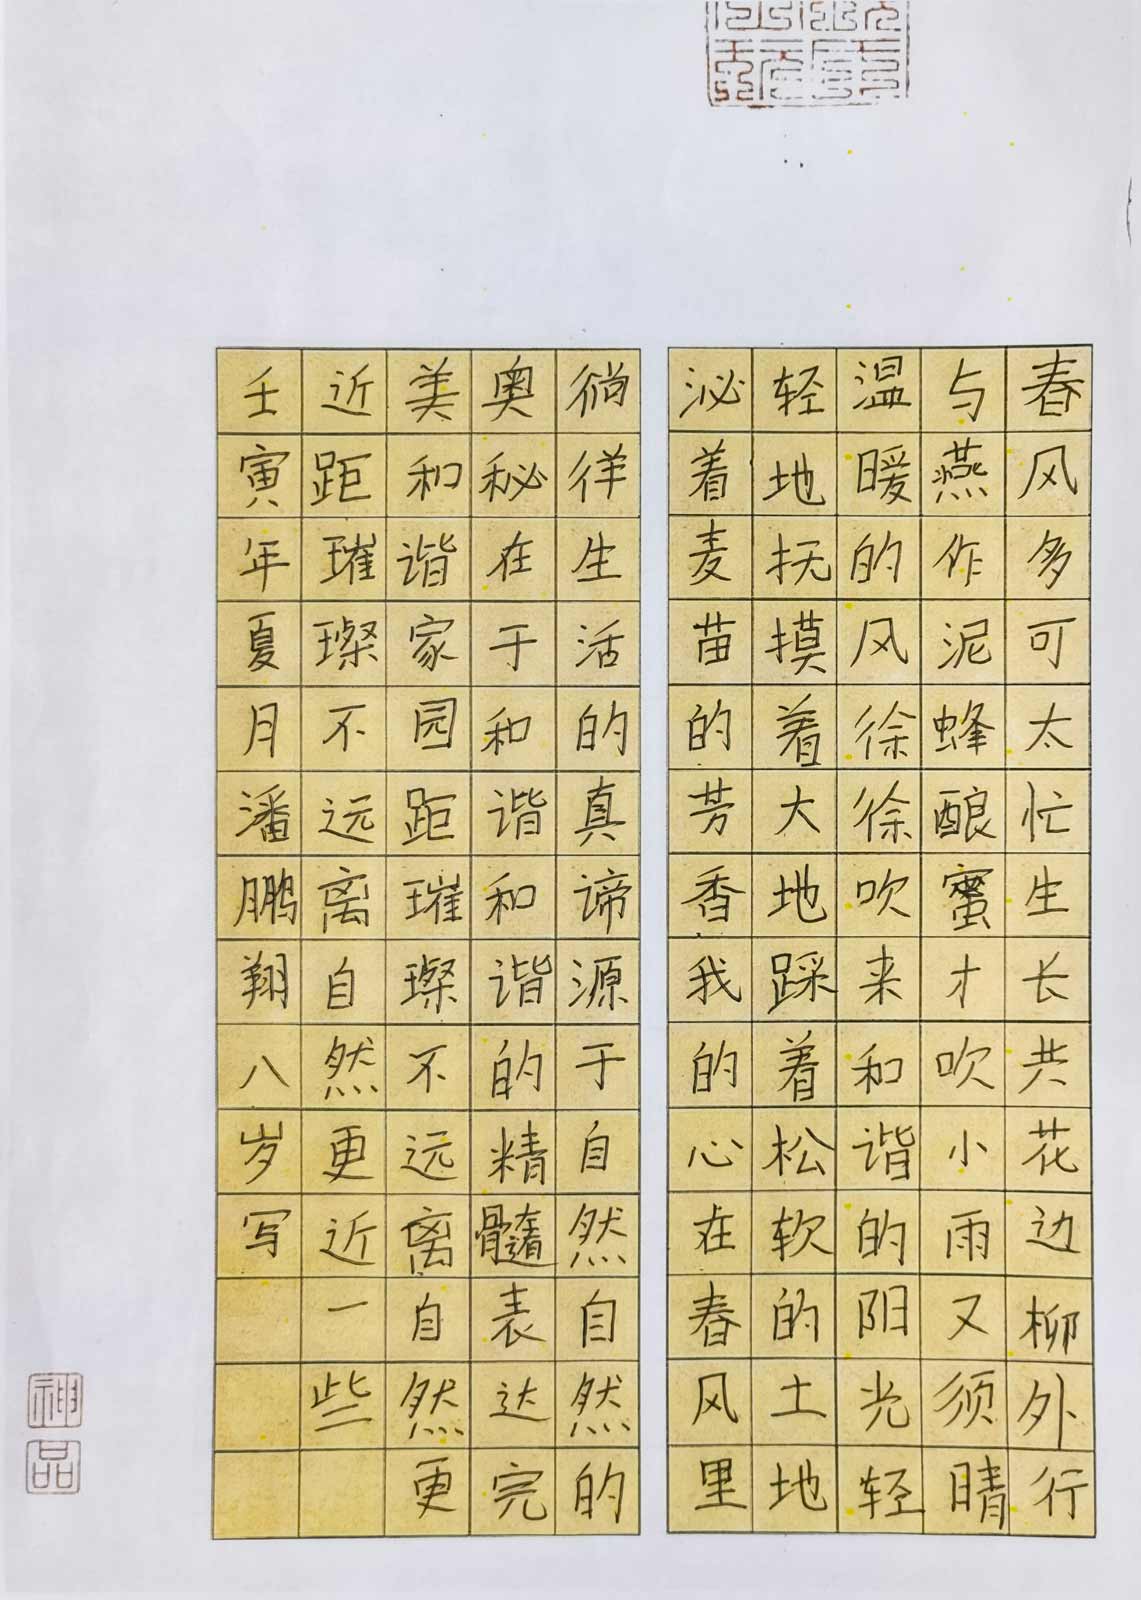 春风多可太忙生长共花边柳外行
与燕作泥蜂酿蜜才吹小雨又须晴
温暖的风徐徐吹来和谐的阳光轻
轻地抚摸着大地踩着松软的土地
沁着麦苗的芳香我的心在春风里
徜徉生活的真谛源于自然自然的
奥秘在于和谐和谐的精髓表达完
美和谐家园距璀璨不远离自然更
近距璀璨不远离自然更近一些
壬寅年夏月潘鹏翔八岁写
神品